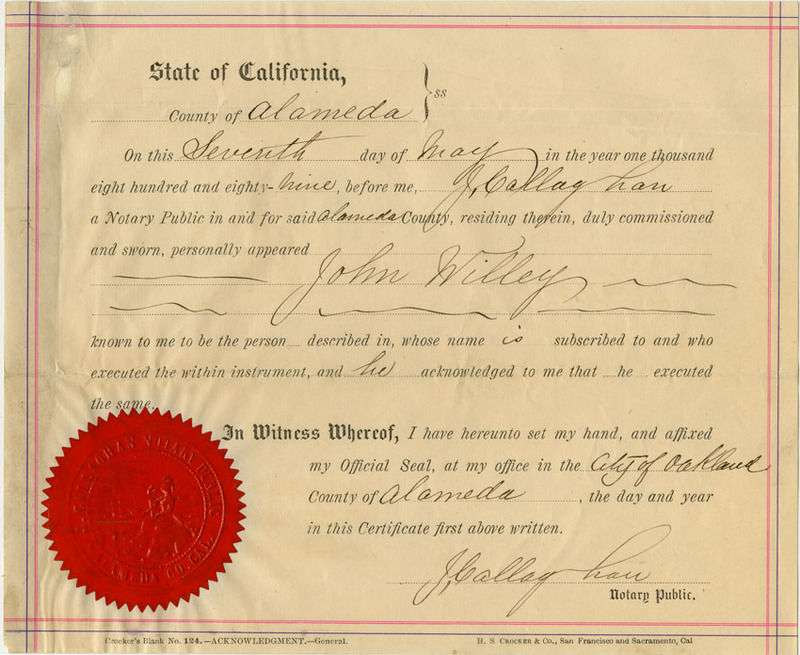 State of California,
ss
County of Alameda
On this Seventh day of May in the year one thousand
eight hundred and eighty-nine, before me, J. Callaghan
a Notary Public in and for said Alameda County, residing therein, duly commissioned
and sworn, personally appeared
John Willey
known to me to be the person described in, whose name is subscribed to and who
executed the within instrument, and he acknowledged to me that he executed
the same.
In Witness Whereof, I have hereunto set my hand, and affixed
my Official Seal, at my office in the City of Oakland
County of Alameda, the day and year
in this Certificate first above written.
J. Callaghan
Notary Public.
J. CALLAGHAN NOTARY PUBLIC
ALAMEDA CO. CAL.
Crocker's Blank No. 124.—ACKNOWLEDGMENT.—General.
H. S CROCKER & Co., San Francisco and Sacramento, Cal